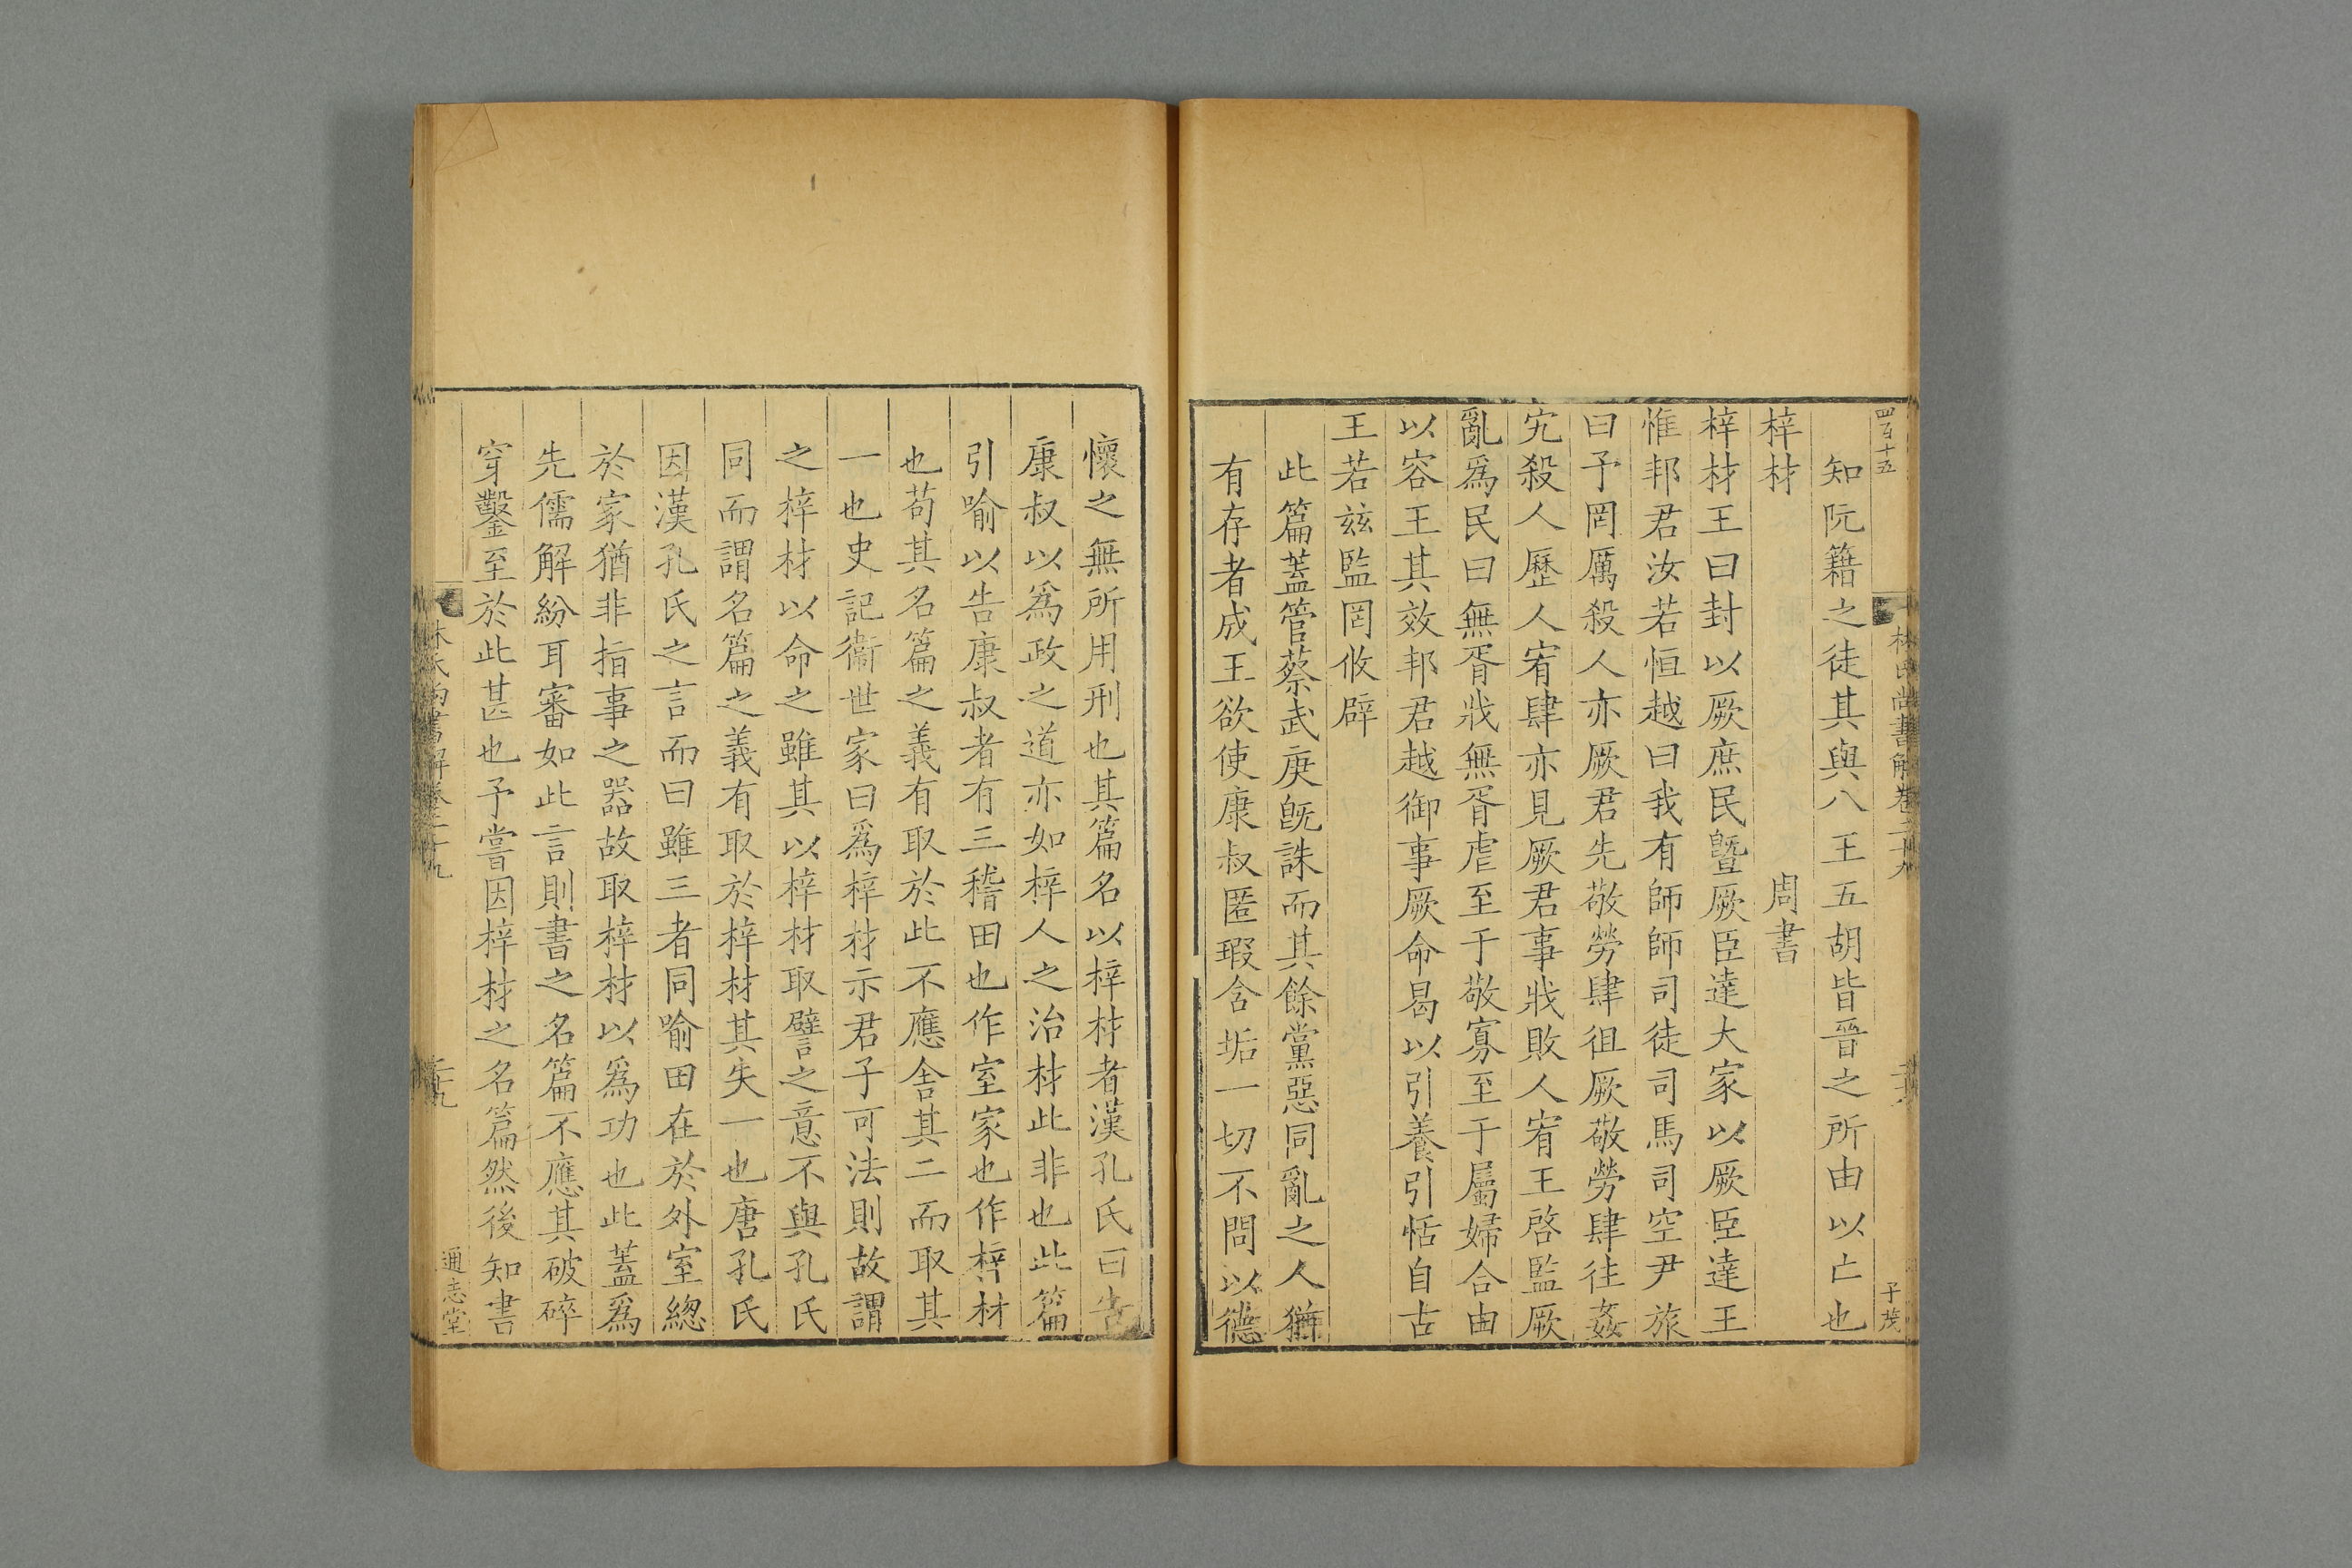 四百十五
林氏尚書解卷二十九
子茂
知阮籍之徒其與八王五胡皆晉之所由以亡也
梓材 周書
梓材王曰封以厥庶民曁厥臣達大家以厥臣達王
惟邦君汝若恒越曰我有師師司徒司馬司空尹旅
曰予罔厲殺人亦厥君先敬勞肆徂厥敬勞肆往姦
宄殺人歷人宥肆亦見厥君事戕敗人宥王啓監厥
亂爲民曰無胥戕無胥虐至于敬寡至于屬婦合由
以容王其效邦君越御事厥命曷以引養引恬自古
王若兹監罔攸辟
此篇蓋管蔡武庚旣誅而其餘黨惡同亂之人猶
有存者成王欲使康叔匿瑕含垢一切不問以德
懷之無所用刑也其篇名以梓材者漢孔氏曰告
康叔以爲政之道亦如梓人之治材此非也此篇
引喻以告康叔者有三稽田也作室家也作梓材
也苟其名篇之義有取於此不應舍其二而取其
一也史記衞世家曰爲梓材示君子可法則故謂
之梓材以命之雖其以梓材取譬之意不與孔氏
同而謂名篇之義有取於梓材其失一也唐孔氏
因漢孔氏之言而曰雖三者同喻田在於外室總
於家猶非指事之器故取梓材以爲功也此蓋爲
先儒解紛耳審如此言則書之名篇不應其破碎
穿鑿至於此甚也予嘗因梓材之名篇然後知書
林氏尚書解卷二十九
通志堂